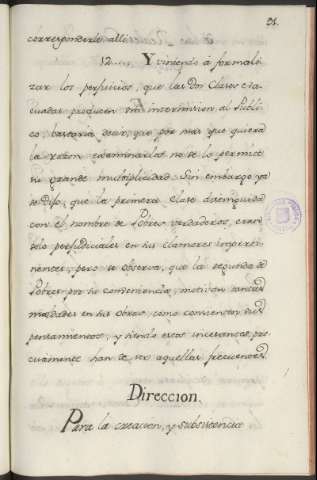 31.
correspondente alli.
12.. Y viniendo à formali
zar los perjuicios, que las dos Clases eva
cuadas producen sin intermision al Publi
co, bastaria decir, que por mas que quiera
la razon examinarlos no se lo permite
su grande multiplicidad. Sin embargo ya
se dijo, que la primera clase distinguida
con el nombre de Pobres verdaderos, eran
solo perjudiciales en sus clamores imperti
nentes, pero se observa, que la segunda de
Pobres por su conveniencia, motivan tantas
maldades en sus obras, como consienten sus
pensamientos, y siendo estos incesantes pre
cisamente han de ser aquellas frecuentes.
Direccion.
Para la creacion, y subsistencia